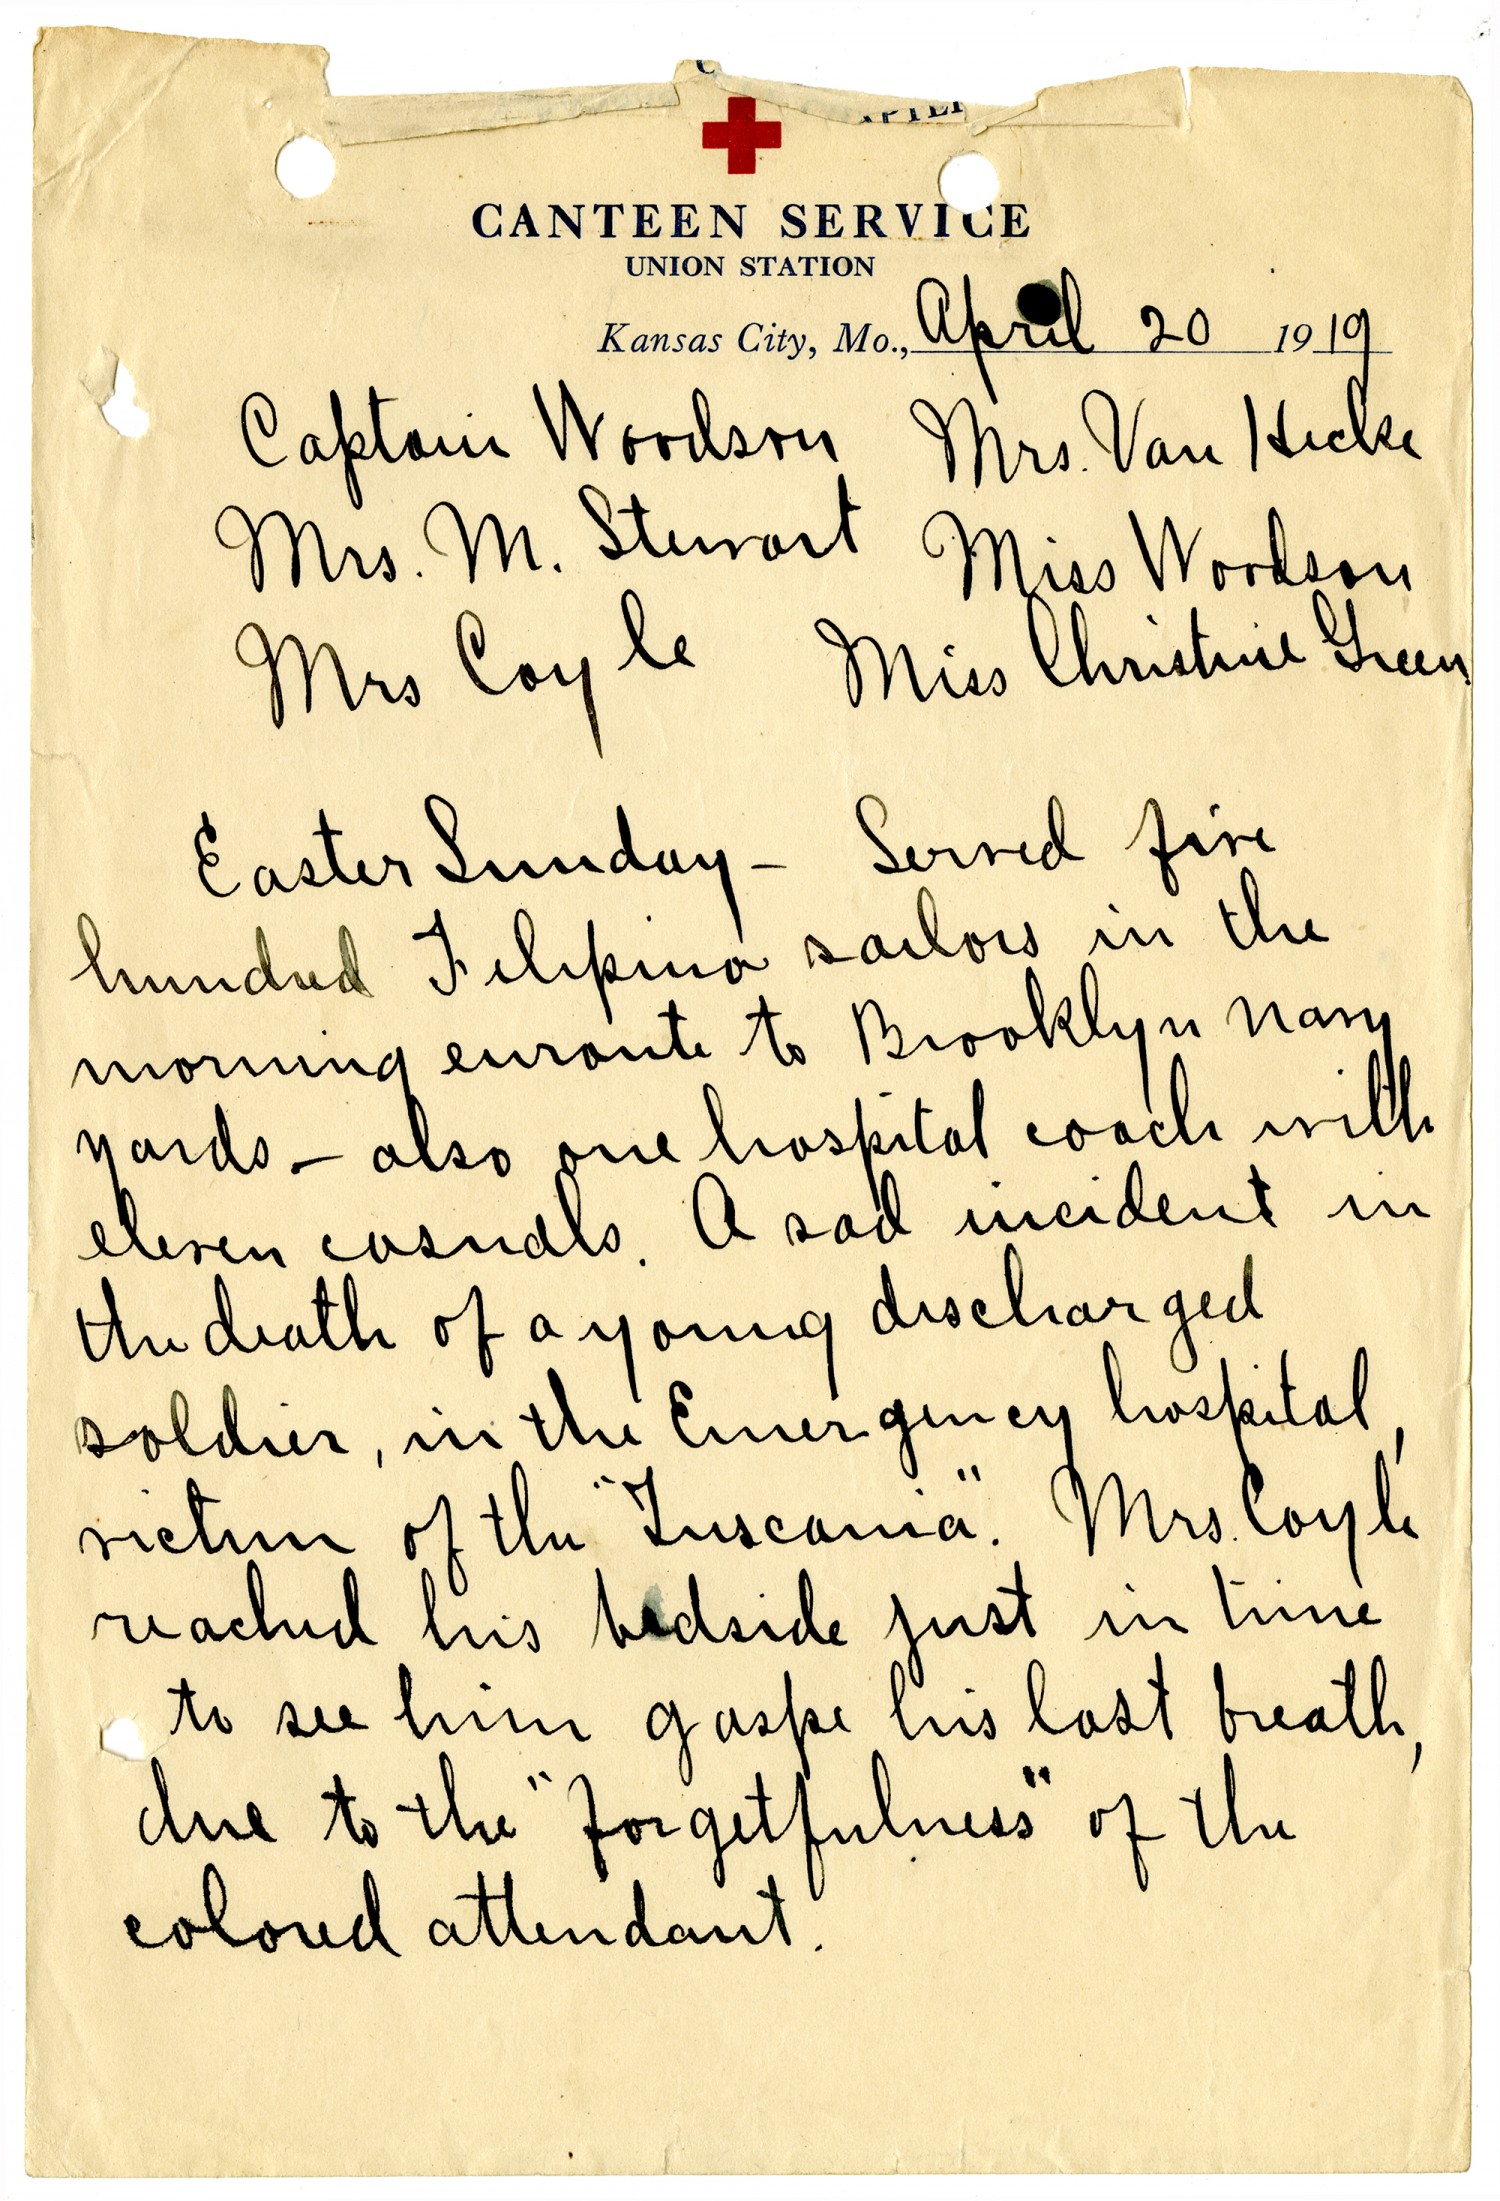 CANTEEN SERVICE
UNION STATION
Kansas City, Mo., April 20 1919
Captain Woodson Mrs. Van Hecke
Mrs. M. Stewart Miss Woodson
Mrs Coyle Miss Christine Green
Easter Sunday - Served five
hundred Filipino sailors in the
morning enroute to Brooklyn navy
yards - also one hospital coach with
eleven casuals. A sad incident in
the death of a young discharged
soldier, in the Emergency hospital,
victim of the "Tuscania". Mrs. Coyle
reached his bedside just in time
to see him gaspe his last breath,
due to the "forgetfulness" of the
colored attendant.